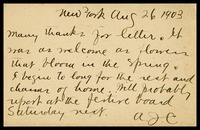 New York Aug 26 1903
Many thanks for letter. It
was as welcome as flowers
that bloom in the Spring.
I begin to long for the rest and
charms of home. Will probably
report at the festive board
Saturday next.
AJC